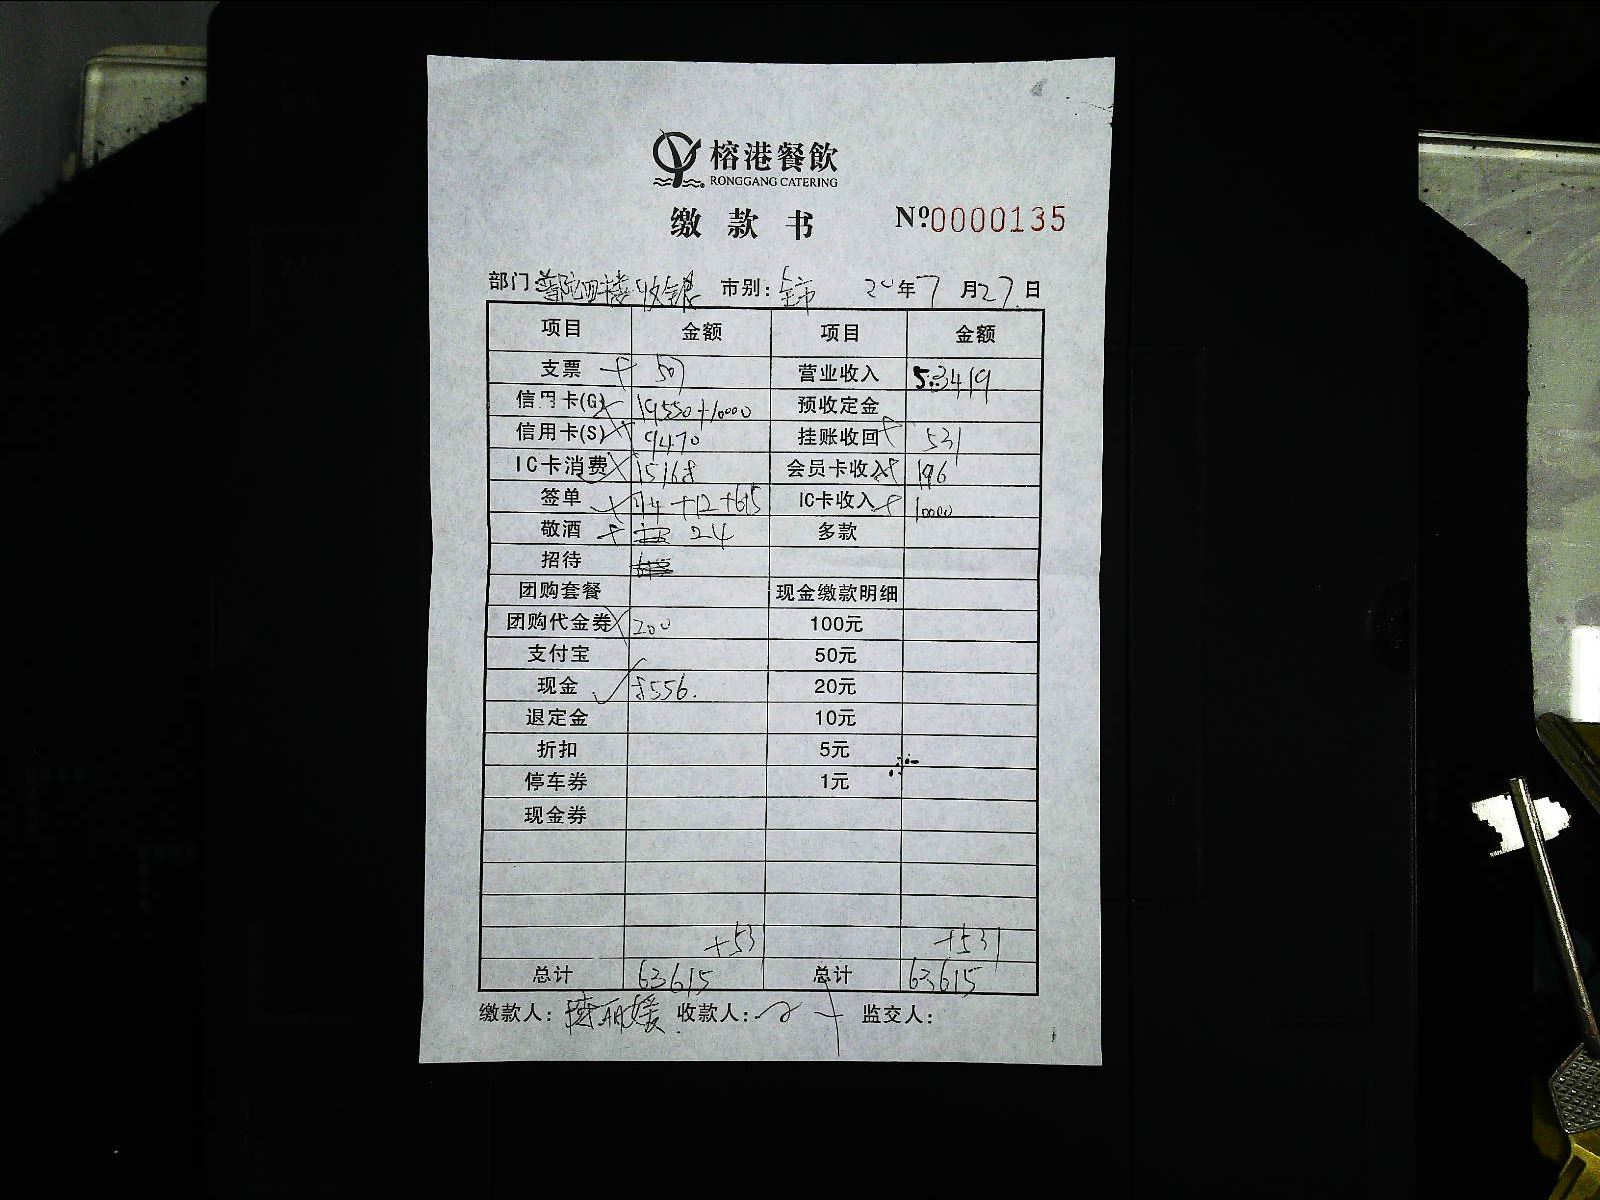 榕港餐飲
RONGGANG CATERING
缴款书 Nº0000135
部门: 普陀四楼收银 市别: 全市 20年7月27日
项目 金额 项目 金额
支票 507 营业收入 53419
信用卡(G) 19550+10000 预收定金
信用卡(S) 9470 挂账收回 531
IC卡消费 15168 会员卡收入 196
签单 +12+615 IC卡收入 10000
敬酒 24 多款
招待
团购套餐 现金缴款明细
团购代金券 200 100元
支付宝 50元
现金 8556. 20元
退定金 10元
折扣 5元
停车券 1元
现金券
+531 +531
总计 63615 总计 63615
缴款人: 收款人: 监交人: